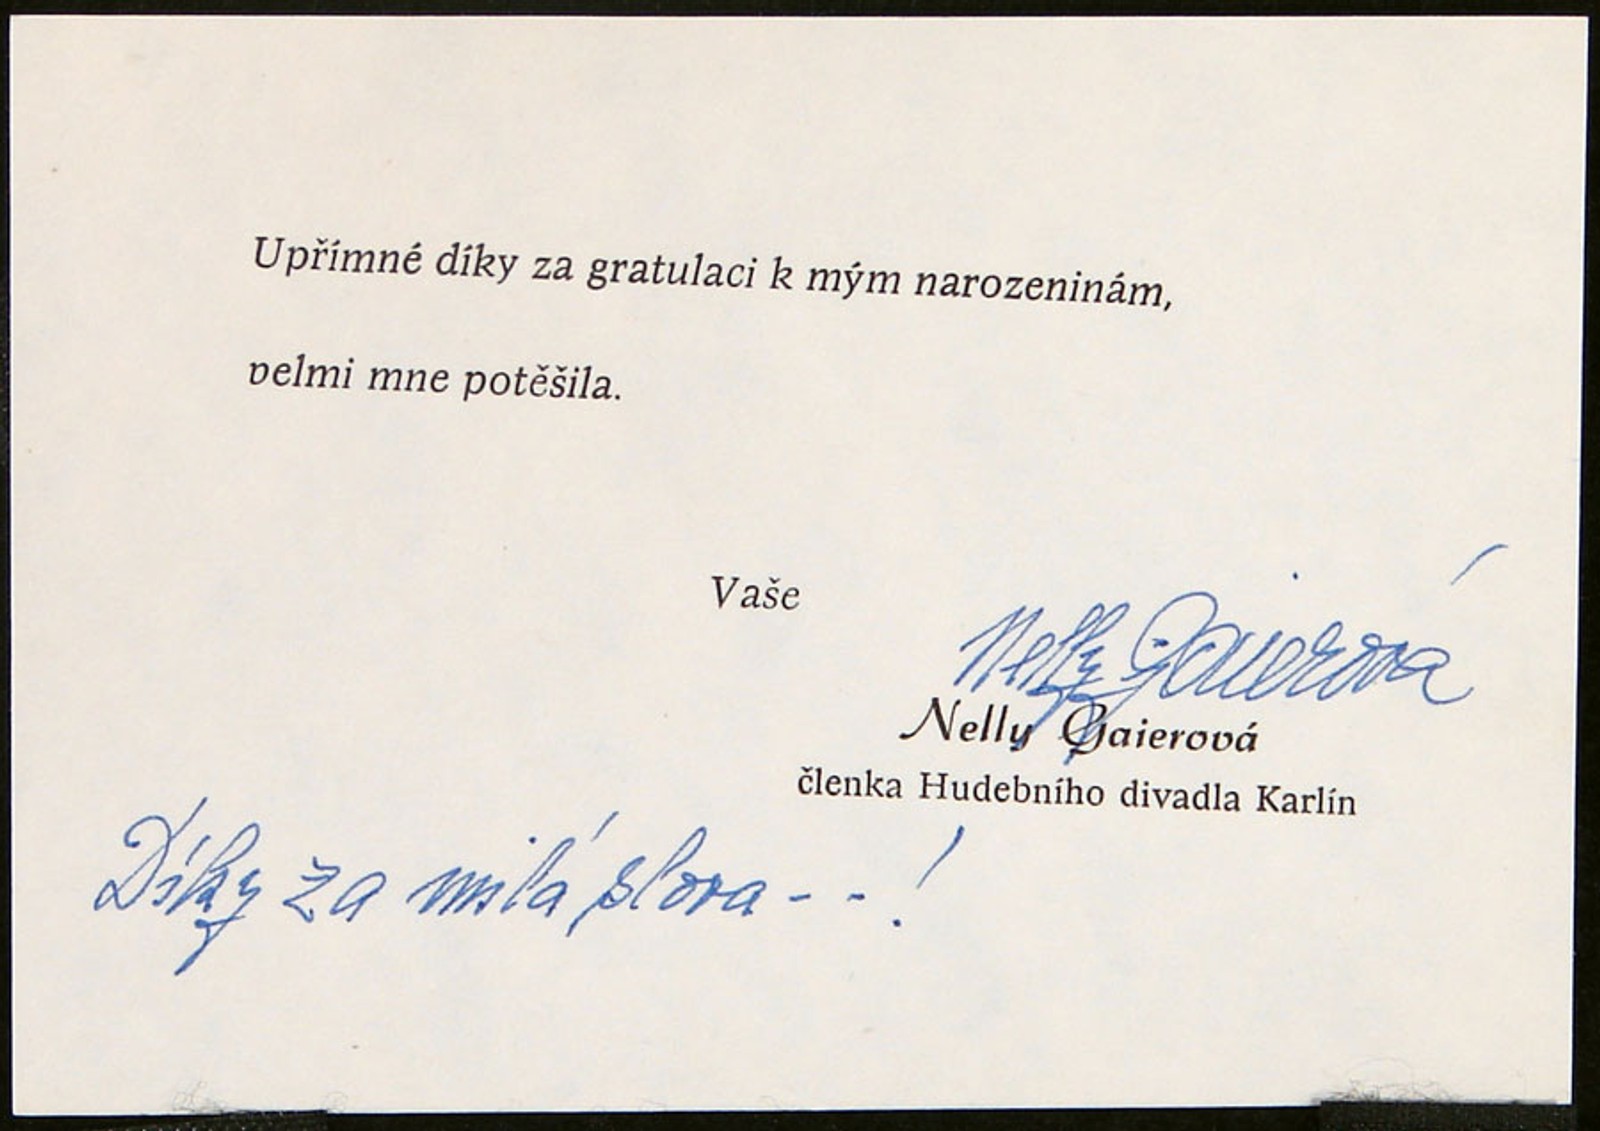 Upřímné díky za gratulaci k mým narozeninám,
velmi mne potěšila.
Vaše
Nelly Gaierová
Nelly Gaierová
členka Hudebního divadla Karlín
Díky za milá slova - - !